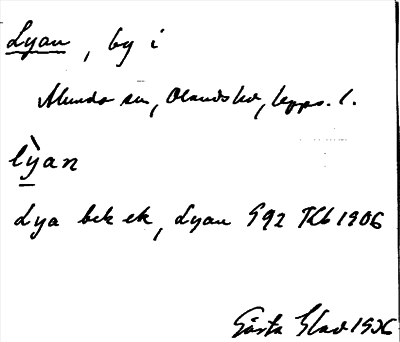 Lyan, by i
Alunda sn, Olands hd, Upps. l.
lỳan
Lya bek ek, Lyan G92 Tkb 1906
Gösta Glad 1936